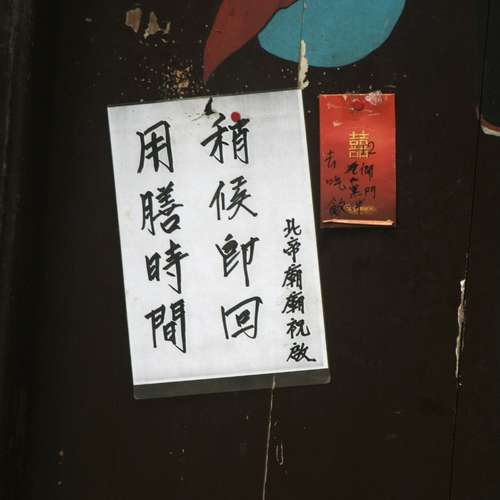 用膳時間
稍候即回
北帝廟廟祝啟
囍
去吃飯